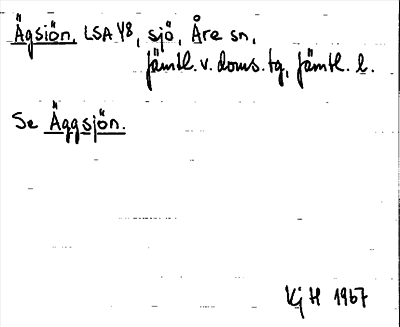 Ägsiön, LSA Y8, sjö, Åre sn,
Jämtl. v. doms. tg, Jämtl. l.
Se Äggsjön.
Kj H 1967